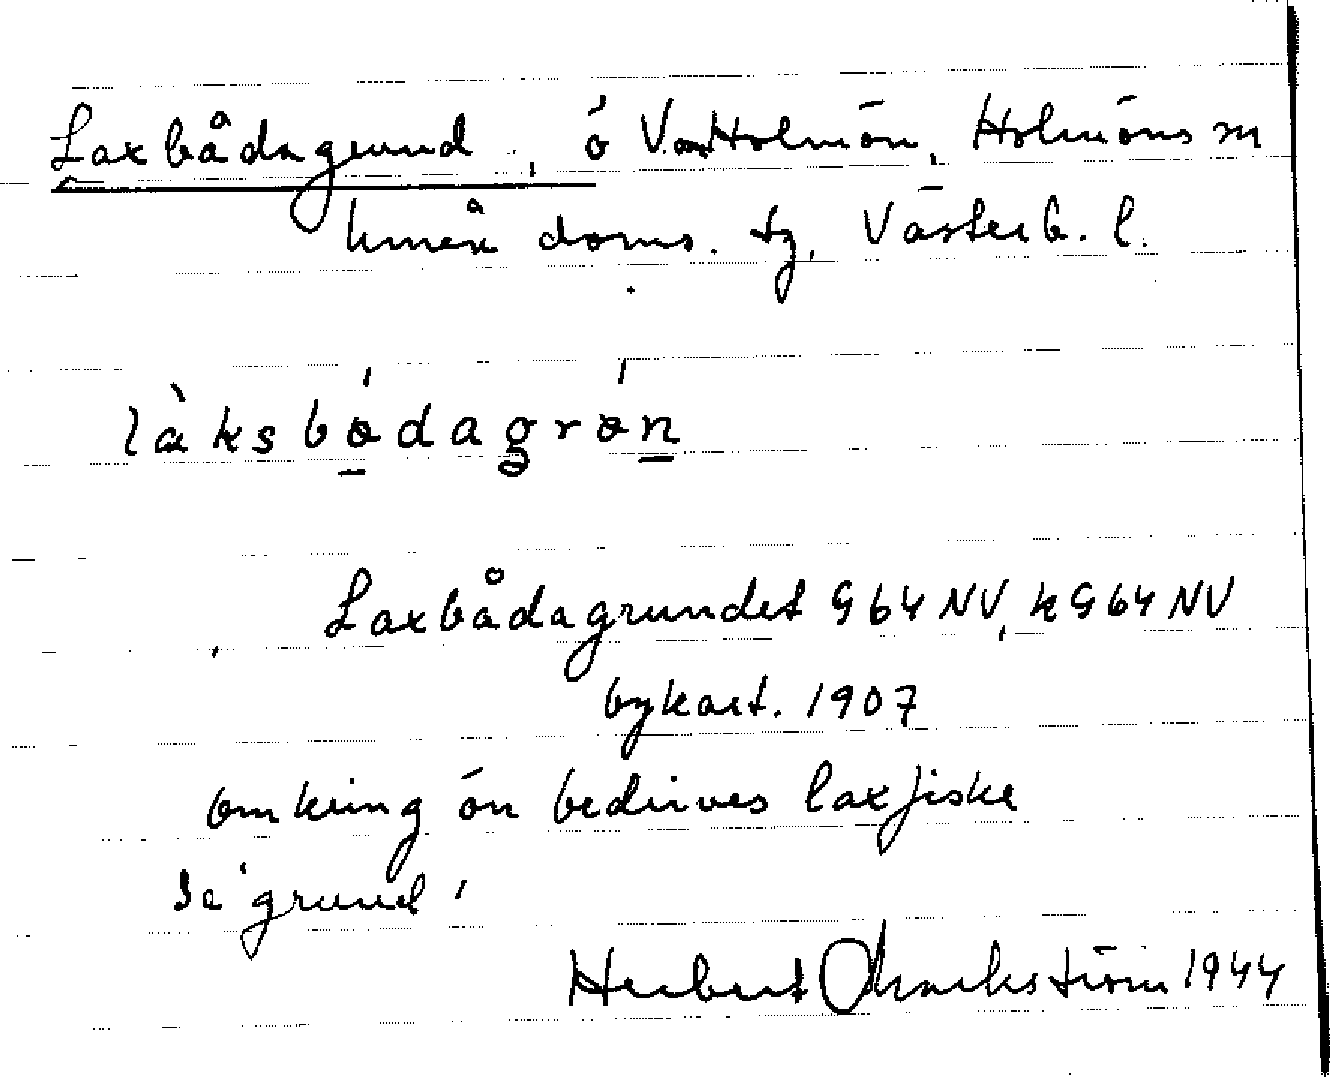 Laxbådagrund, ö V. om Holmön, Holmöns sn
Umeå doms. tg, Västerb. l.
làksbɷ́dagrɷ́n
Laxbådagrundet G 64 NV, k G 64 NV
bykart. 1907
omkring ön bedrives laxfiske
Se 'grund'
Herbert Markström 1944